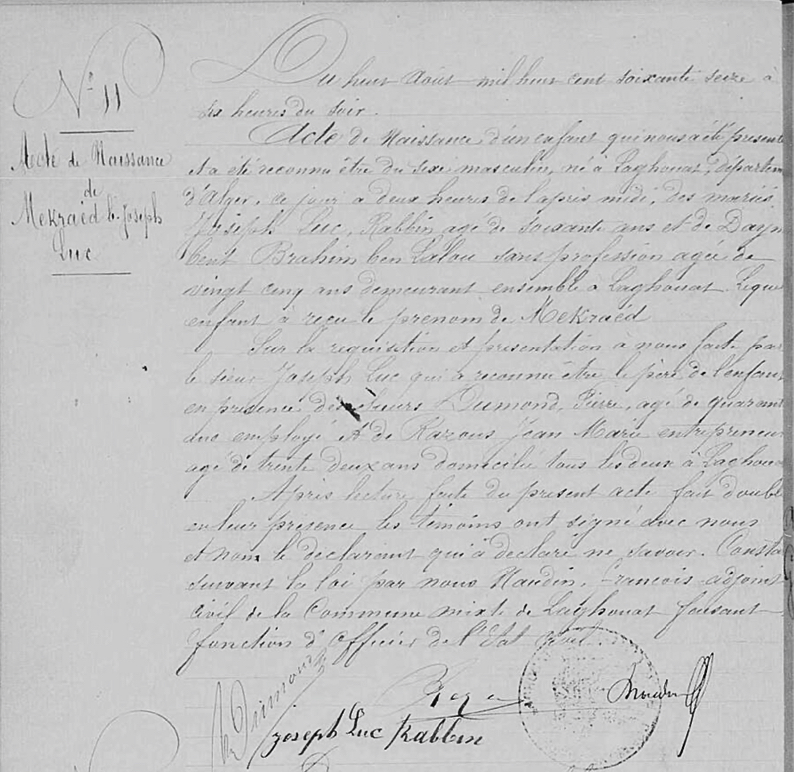 N° 11
Acte de Naissance
de
Mekraëd b. Joseph
Luc
Du huit Août mil huit cent soixante seize à
six heures du soir.
Acte de Naissance d'un enfant qui nous a été present
et a été reconnu être du sexe masculin, né à Laghouat, départem
d'Alger, ce jour à deux heures de l'après midi, des mariés
Joseph Luc, Rabbin agé de soixante ans et de Dayn
bent Brahim ben Lalou sans profession agée de
vingt cinq ans demeurant ensemble à Laghouat. Leque
enfant a reçu le prenom de Mekraëd
Sur la requisition et présentation à nous faite par
le sieur Joseph Luc qui a reconnu être le père de l'enfant
en présence des sieurs Dumond, Pierre, agé de quarant
ans employé et de Razous Jean Marie entrepreneur
agé de trente deux ans domicilié tous les deux à Laghoua
Après lecture faite du present acte fait double
en leur présence les témoins ont signé avec nous
et non le declarant qui a declaré ne savoir. Consta
suivant la loi par nous Naudin, François adjoint
civil de la Commune mixte de Laghouat faisant
fonction d'Officier de l'Etat civil.
Dumond
joseph Luc Rabbin